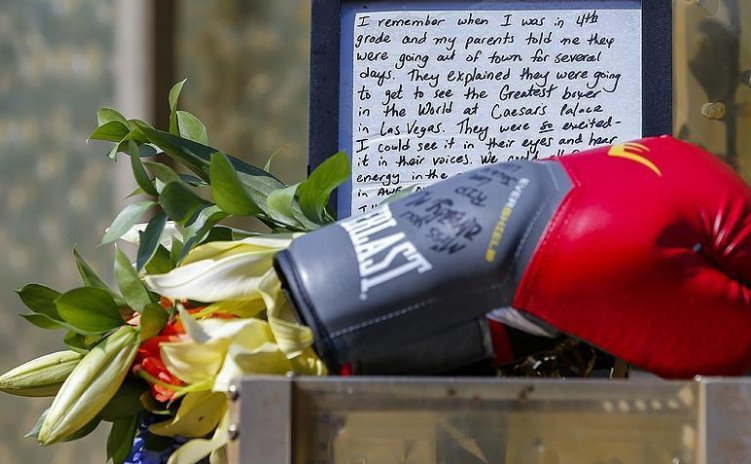 I remember when I was in 4th
grade and my parents told me they
were going out of town for several
days. They explained they were going
to get to see the Greatest boxer
in the World at Caesar's Palace
in Las Vegas. They were so excited-
I could see it in their eyes and hear
it in their voices. We
energy in the
in awe
EVERLAST
EVERSHIELD
Miss You
already
RIP